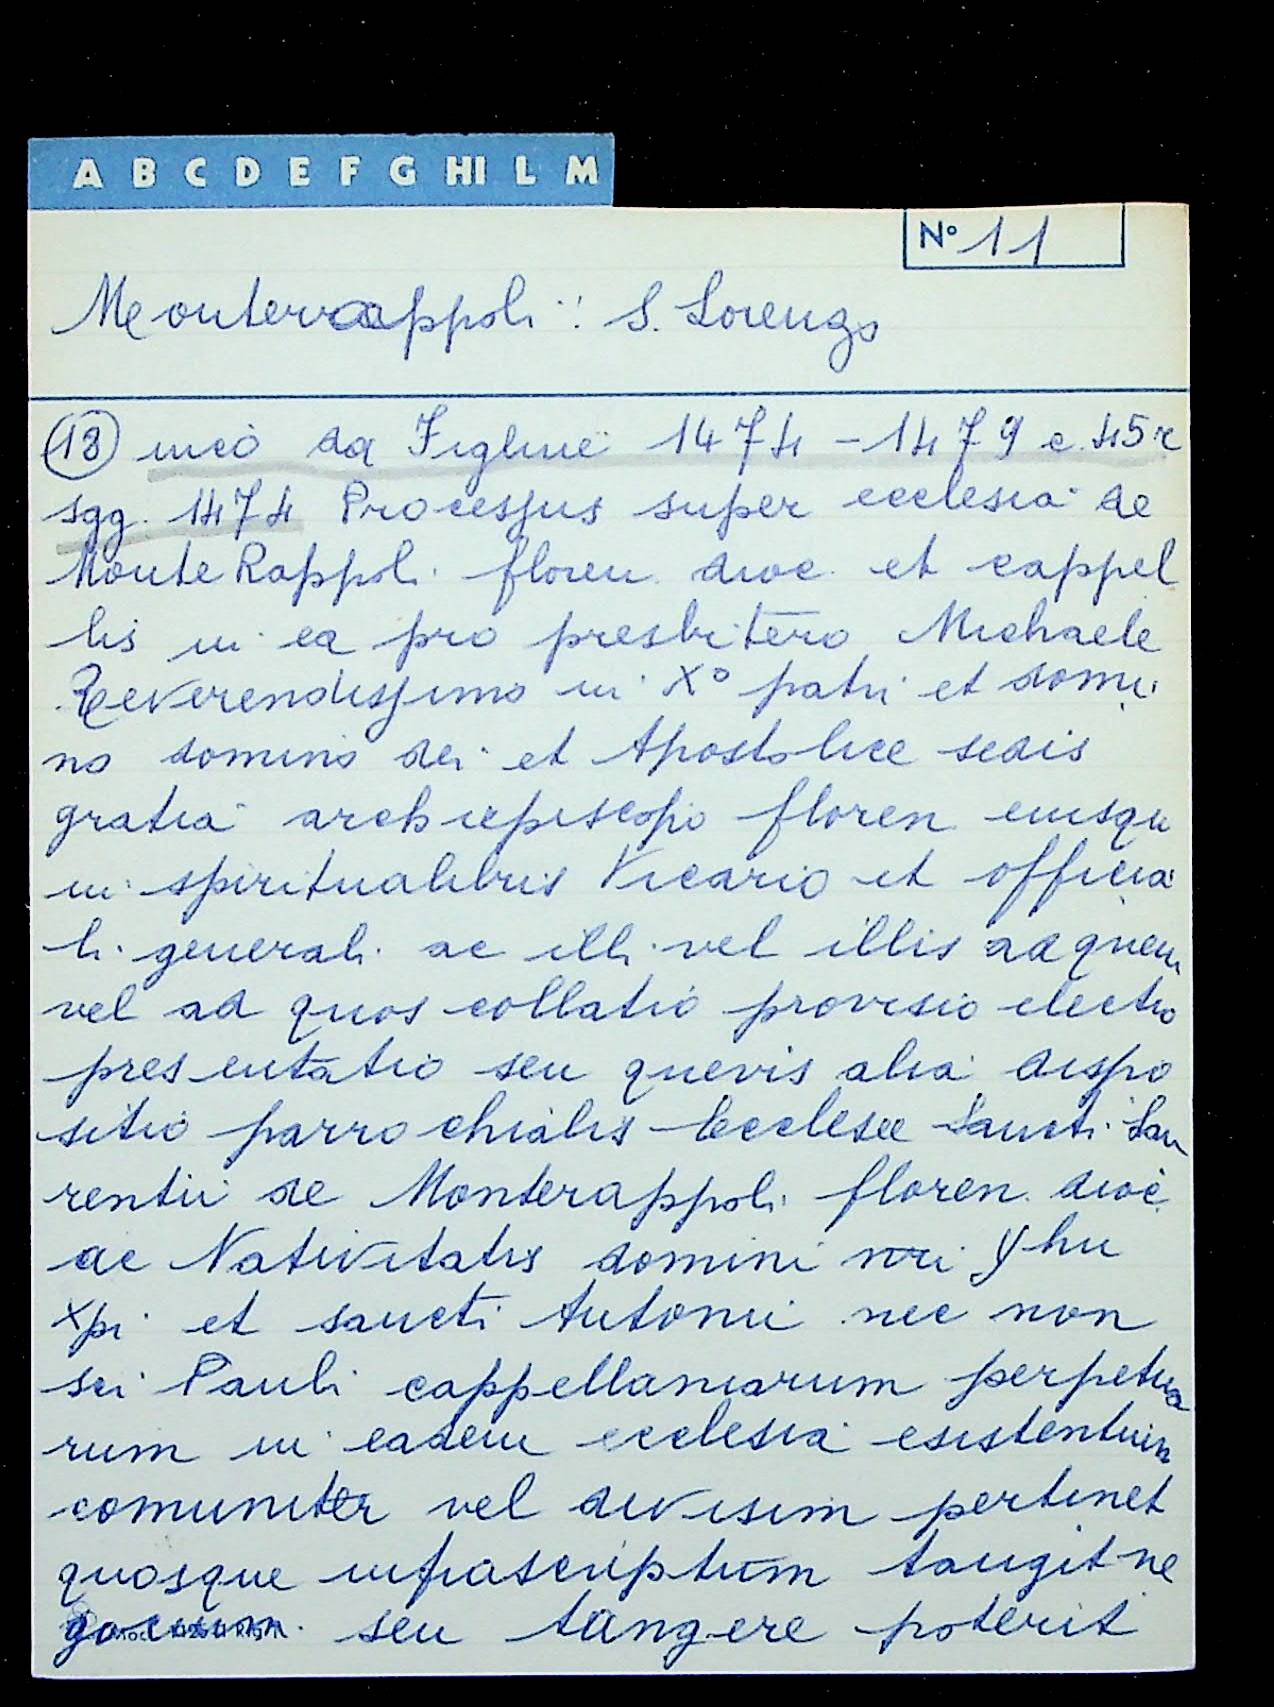 A B C D E F G HI L M
N° 11
Monterappoli: S. Lorenzo
(13) meo da Figline 1474-1479 c. 45r
sgg. 1474 Processus super ecclesia de
Monte Rappoli floren dioc. et cappel
lis in ea pro presbitero Michaele
Reverendissimo in X° patri et domi
no domino dei et Apostolice sedis
gratia archiepiscopo floren eiusqu
in spiritualibus Vicario et officia
li generali ac illi vel illis ad quem
vel ad quos collatio provisio electio
presentatio seu quevis alia dispo
sitio parrochialis Ecclesie Sancti Lau
rentii de Monterappoli floren. dioc.
ac Nativitatis domini nri Yhu
xpi et sancti Antonii nec non
sci Pauli cappellaniarum perpetua
rum in eadem ecclesia esistentium
comuniter vel divisim pertinet
quosque infrascriptum tangit ne
gocium seu tangere poterit